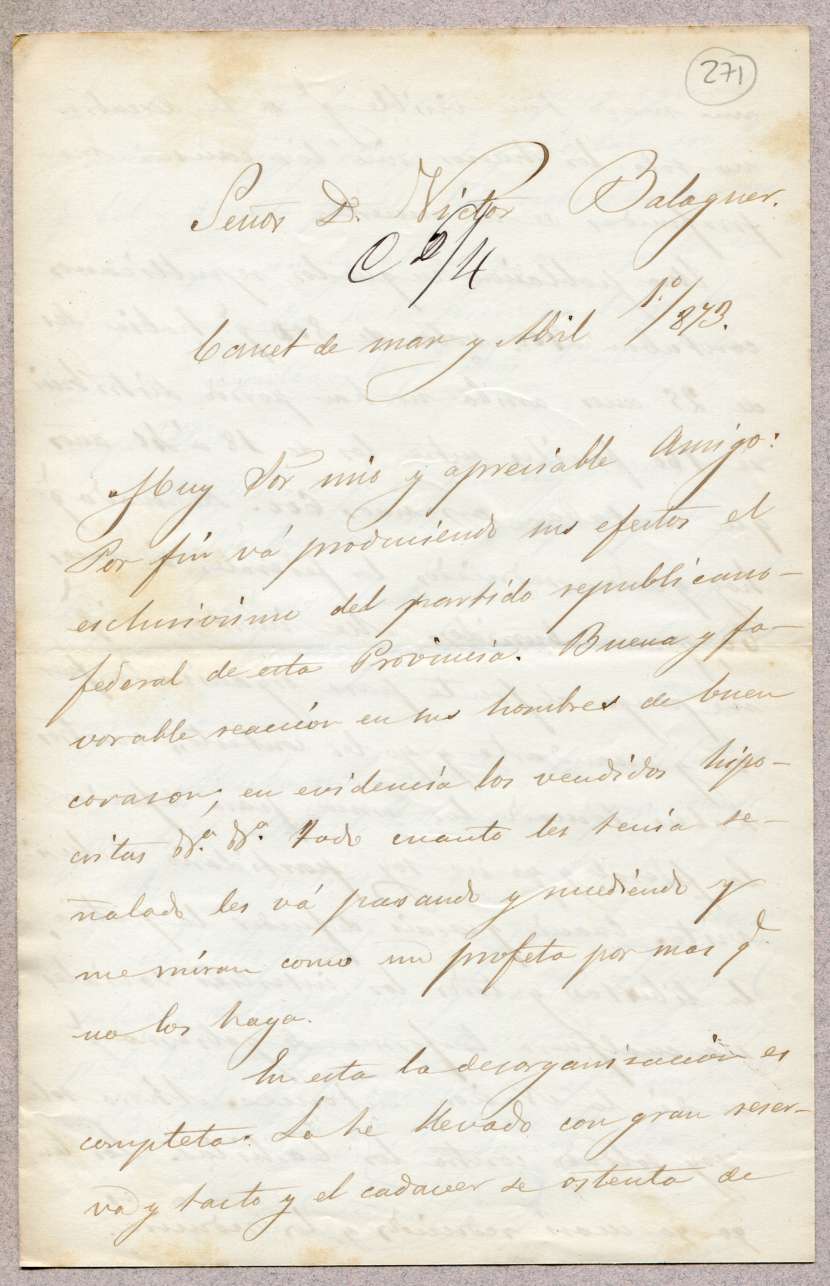 271
Señor Dn. Victor Balaguer.
C 6/4
Canet de mar y Abril 1.º/873.
Muy Sor mio y apreciable Amigo:
Por fin vá produciendo sus efectos el
esclusivismo del partido republicano-
federal de esta Provincia. Buena y fa-
vorable reaccion en sus hombres de buen
corazon; en evidencia los vendidos hipo-
critas &.a &.a Todo cuanto les tenia se-
ñalado les vá pasando y sucediendo y
me miran como un profeta por mas q.e
no los haya.
En esta la desorganisacion es
completa. La he llevado con gran reser-
va y tacto y el cadaver se ostenta de